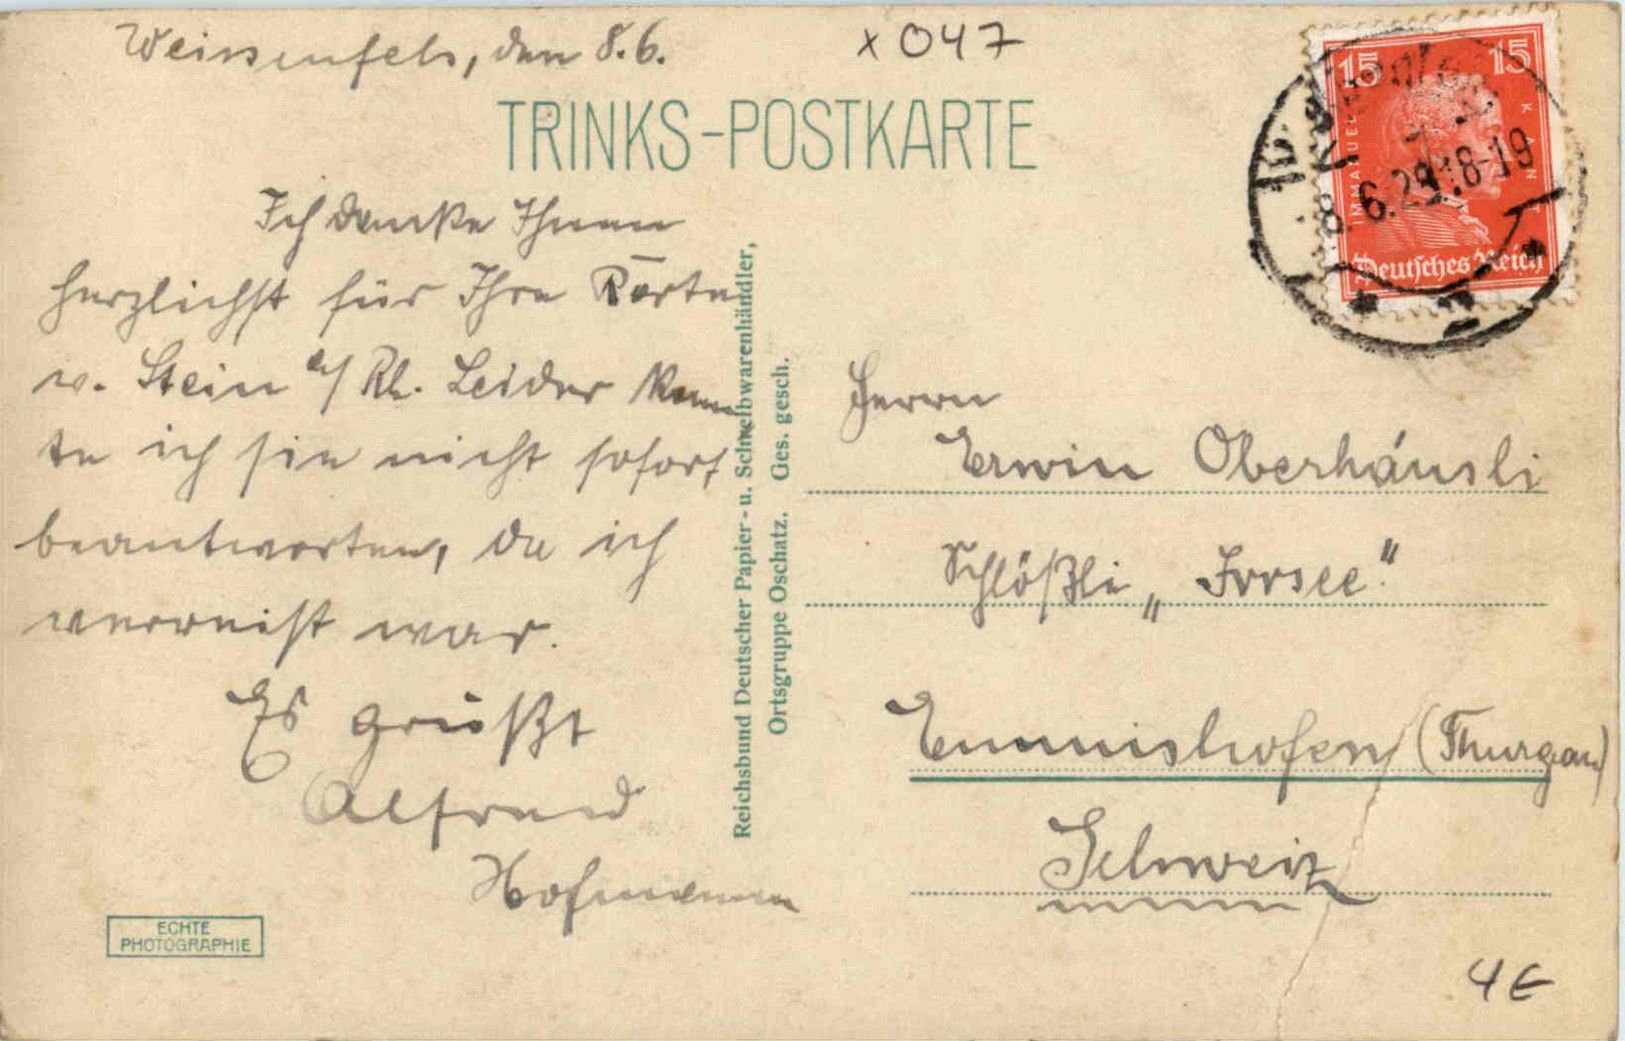 Weissenfels, den 8.6.
x 047
TRINKS-POSTKARTE
Ich danke Ihnen
herzlichst für Ihre Karte
v. Stein a/ Rh. Leider konn
te ich sie nicht sofort
beantworten, da ich
verreist war.
Es grüßt
Alfred
Hofmann
ECHTE
PHOTOGRAPHIE
Reichsbund Deutscher Papier- u. Schreibwarenhändler,
Ortsgruppe Oschatz. Ges. gesch.
15 15
IMMANUEL KANT
Deutsches Reich
8.6.29.18-19
Herrn
Erwin Oberhänsli
Schlößli „Irrsee."
Emmishofen (Thurgau)
Schweiz
4€